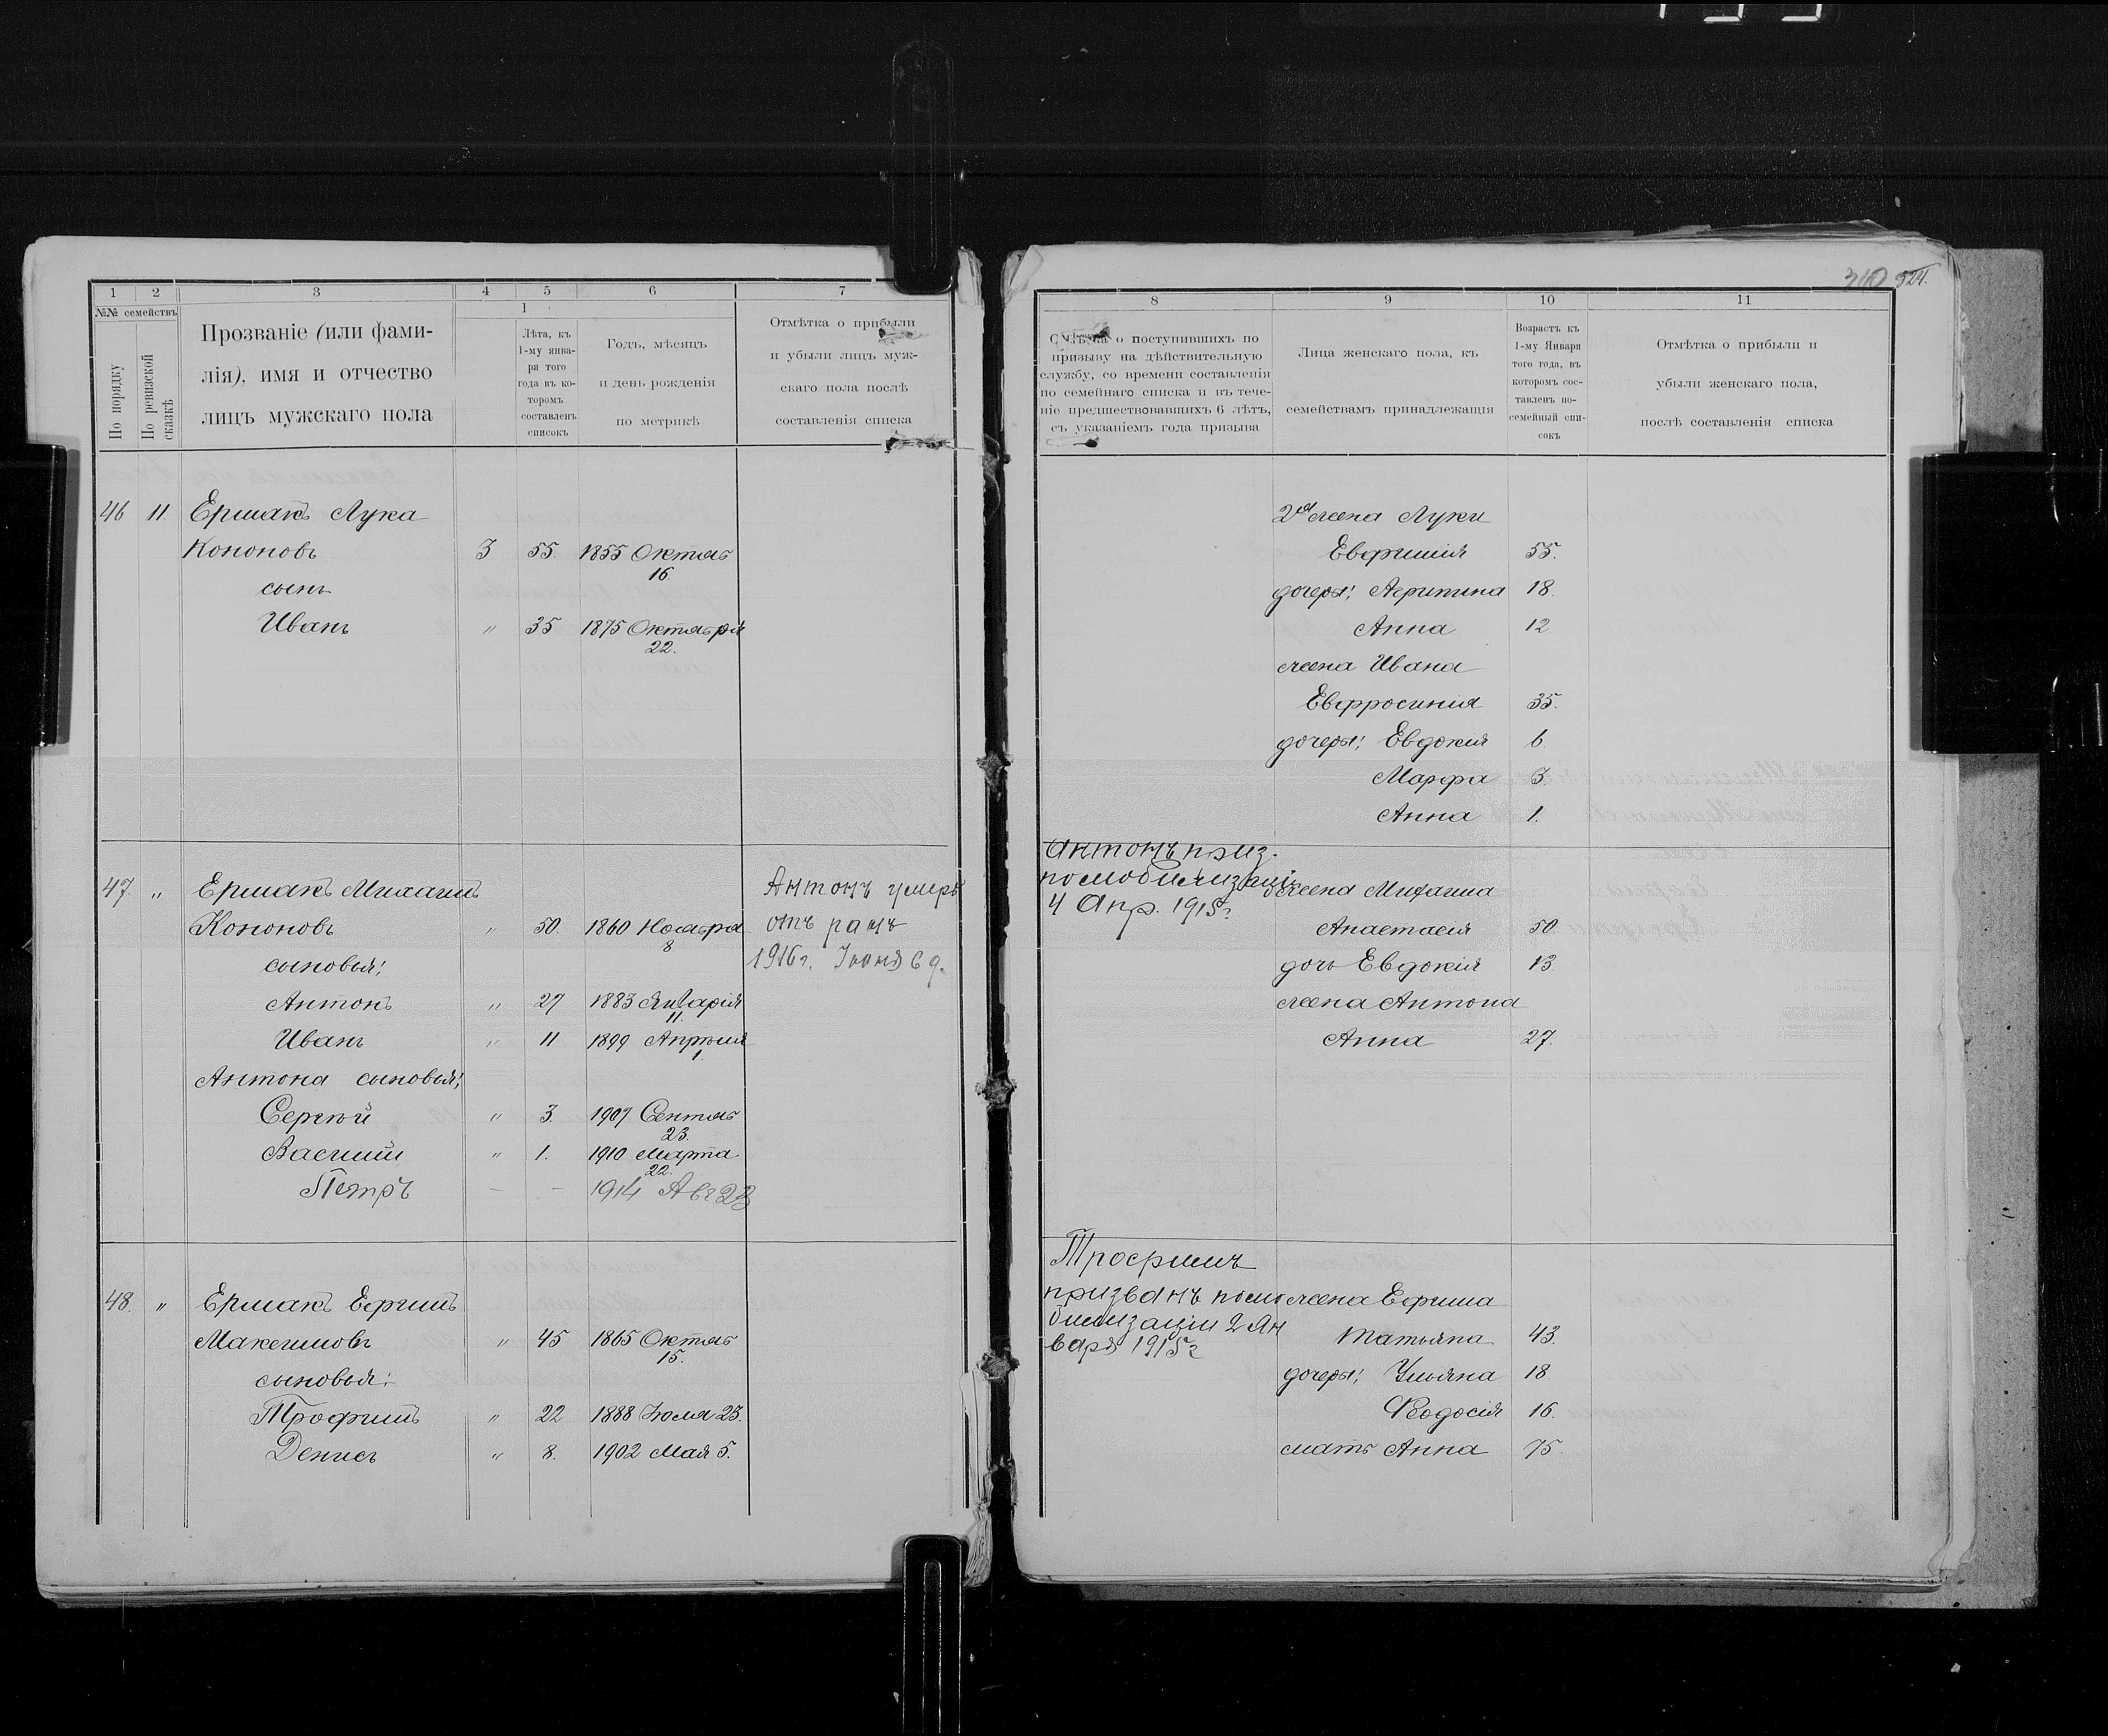 1 2 3 4 5 6 7
№№ семействъ
По порядку
По ревизской сказкѣ
Прозваніе (или фами-
лія), имя и отчество
лицъ мужскаго пола
1
Лѣта, къ
1-му янва-
ря того
года въ ко-
торомъ
составленъ
списокъ
Годъ, мѣсяцъ
и день рожденія
по метрикѣ
Отмѣтка о прибыли
и убыли лицъ муж-
скаго пола послѣ
составленія списка
46 11 Ермакъ Лука
Кононовъ 3 55. 1855 Октяб
16.
сынъ
Иванъ " 35 1875 Октября
22.
47. " Ермакъ Михаилъ
Кононовъ " 50. 1860 Ноября
8
сыновья:
Антонъ " 27 1883 Января
11.
Иванъ " 11 1899 Апрѣля
1.
Антона сыновья:
Сергѣй " 3. 1907 Сентяб
23.
Василій " 1. 1910 Марта
22.
Петръ — — 1914 Авг 23
Антонъ умеръ
отъ ранъ
1916 г. Іюня 6 д.
48. " Ермакъ Ефимъ
Максимовъ " 45 1865 Октяб
15.
сыновья:
Трофимъ " 22 1888 Іюля 23.
Денисъ " 8. 1902 Мая 5.
310 324.
8 9 10 11
о поступившихъ по
призыву на дѣйствительную
службу, со времени составленія
по семейнаго списка и въ тече-
ніе предшествовавшихъ 6 лѣтъ,
съ указаніемъ года призыва
Лица женскаго пола, къ
семействамъ принадлежащія
Возрастъ къ
1-му Января
того года, въ
которомъ сос-
тавленъ по-
семейный спи-
сокъ
Отмѣтка о прибыли и
убыли женскаго пола,
послѣ составленія списка
2я жена Луки
Евфимія 55.
дочери: Агрипина 18.
Анна 12.
жена Ивана
Евфросинія 35.
дочери: Евдокія 6.
Марфа 3.
Анна 1.
Антонъ приз.
по мобилизаціи
4 Апр. 1915 г
жена Михаила
Анастасія 50.
дочь Евдокія 13.
жена Антона
Анна 27.
Трофимъ
призванъ по мо
билизаціи 2 Ян
варя 1915 г
жена Ефима
Татьяна 43.
дочери: Ульяна 18
Ѳеодосія 16.
мать Анна 75.